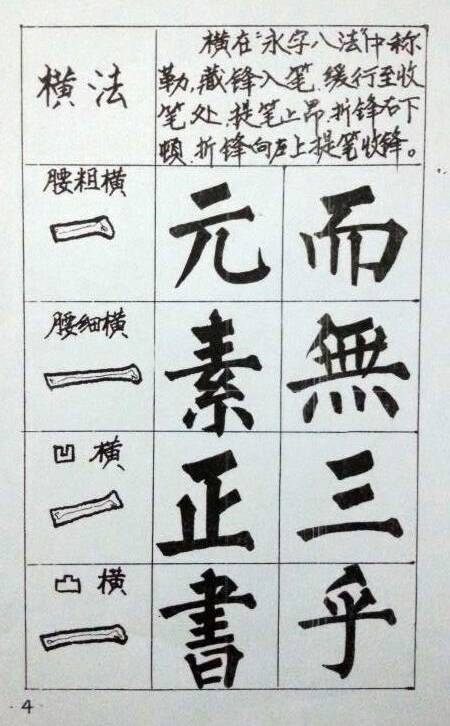 横法
横在“永字八法”中称
勒，藏锋入笔，缓行至收
笔处，提笔上昂，折锋右下
顿，折锋向左上提笔收锋。
腰粗横
元 而
腰细横
素 無
凹横
正 三
凸横
書 乎
4